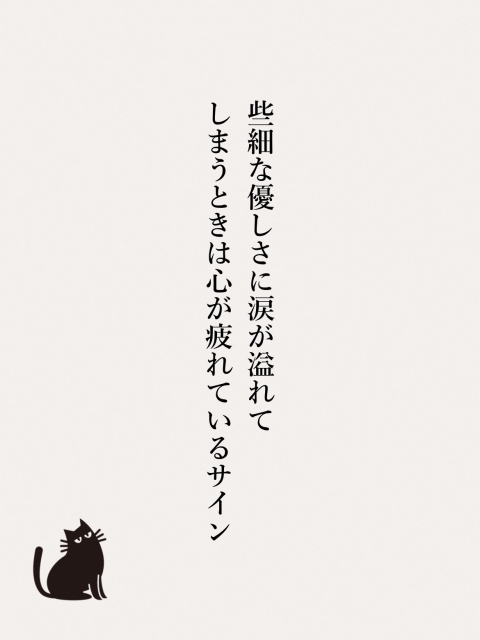 些細な優しさに涙が溢れて
しまうときは心が疲れているサイン